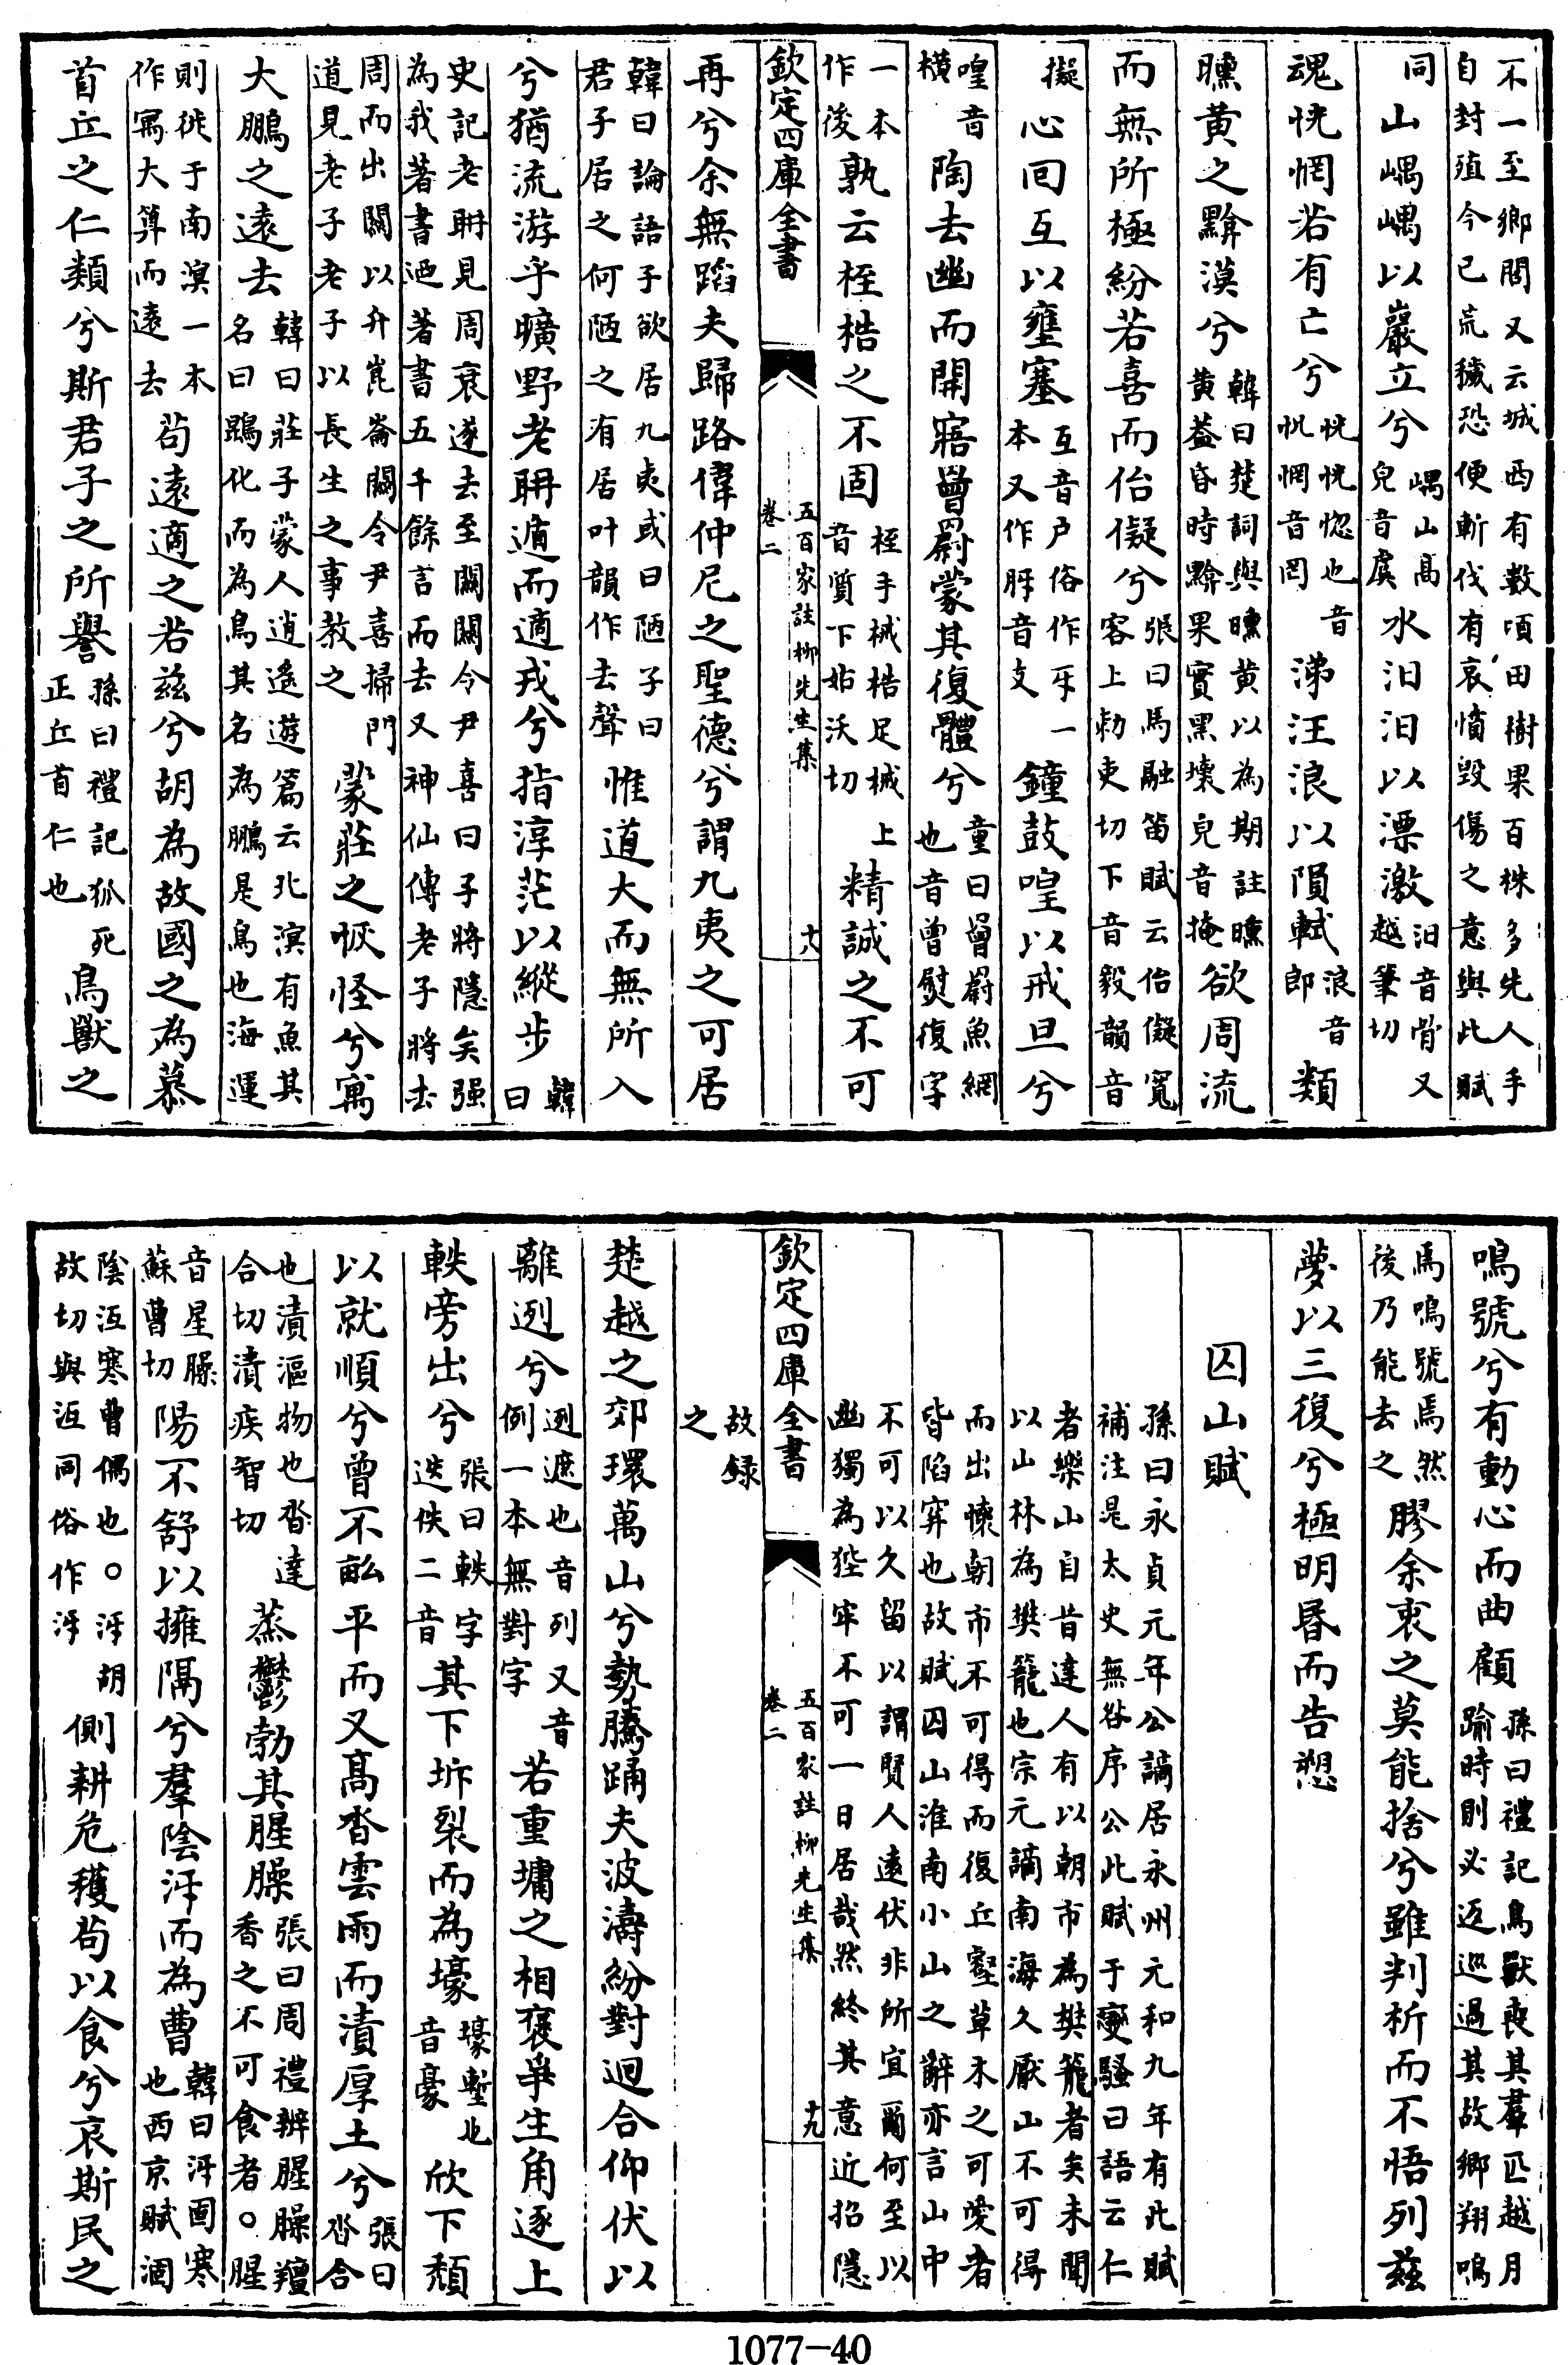 不一至鄉閭又云城西有數頃田樹果百株多先人手自封殖今已荒穢恐便斬伐有哀憤毀傷之意與此賦
同山嵎嵎以巖立兮嵎山高皃音虞水汩汩以漂激汩音骨又越筆切
魂恍惘若有亡兮恍恍惚也音怳惘音罔涕汪浪以隕軾浪音郎類
曛黃之黭漠兮韓曰楚詞與曛黃以為期註曛黃葢昏時黭果實黑壊皃音掩欲周流
而無所極紛若喜而佁儗兮張曰馬融笛賦云佁儗寬容上勑吏切下音毅韻音
擬心回互以壅塞互音户俗作㸦一本又作䏧音支鐘鼓喤以戒旦兮
喤音橫陶去幽而開寤罾罻蒙其復體兮童曰罾罻魚網也音曾熨復字
一本作後孰云桎梏之不固桎手械梏足械上音質下姑沃切精誠之不可
欽定四庫全書 五百家註柳先生集 卷二 十八
再兮余無蹈夫歸路偉仲尼之聖德兮謂九夷之可居
韓曰論語子欲居九夷或曰陋子曰君子居之何陋之有居叶韻作去聲惟道大而無所入
兮猶流游乎曠野老耼遁而適戎兮指淳茫以縱步韓曰
史記老耼見周衰遂去至關關令尹喜曰子將隱矣强為我著書迺著書五千餘言而去又神仙傳老子將去
周而出關以升崑崙關令尹喜掃門道見老子老子以長生之事教之蒙莊之恢怪兮寓
大鵬之遠去韓曰莊子蒙人逍遙遊篇云北溟有魚其名曰鵾化而為鳥其名為鵬是鳥也海運
則徙于南溟一本作寓大算而遠去苟遠適之若茲兮胡為故國之為慕
首丘之仁類兮斯君子之所譽孫曰禮記狐死正丘首仁也鳥獸之
鳴號兮有動心而曲顧孫曰禮記鳥獸喪其羣匹越月踰時則必返巡過其故鄉翔鳴
焉鳴號焉然後乃能去之膠余衷之莫能捨兮雖判析而不悟列茲
夢以三復兮極明昬而告愬
囚山賦
孫曰永貞元年公謫居永州元和九年有此賦補注晁太史無咎序公此賦于變騷曰語云仁
者樂山自昔達人有以朝市為樊籠者矣未聞以山林為樊籠也宗元謫南海久厭山不可得
而出懷朝市不可得而復丘壑草木之可愛者皆陷穽也故賦囚山淮南小山之辭亦言山中
不可以久留以謂賢人遠伏非所宜爾何至以幽獨為狴牢不可一日居哉然終其意近招隱
欽定四庫全書 五百家註柳先生集 卷二 十九
故録之
楚越之郊環萬山兮勢騰踊夫波濤紛對迴合仰伏以
離迾兮迾遮也音列又音例一本無對字若重墉之相褒爭生角逐上
軼旁出兮張曰軼字迭佚二音其下坼裂而為壕壕塹也音豪欣下頹
以就順兮曾不畝平而又高沓雲雨而漬厚土兮張曰沓合
也漬漚物也沓達合切漬疾智切蒸鬱勃其腥臊張曰周禮辨腥臊羶香之不可食者○腥
音星臊蘇曹切陽不舒以擁隔兮羣陰沍而為曹韓曰沍固寒也西京賦涸
陰沍寒曹偶也○沍胡故切與冱同俗作沍側耕危穫苟以食兮哀斯民之
1077-40